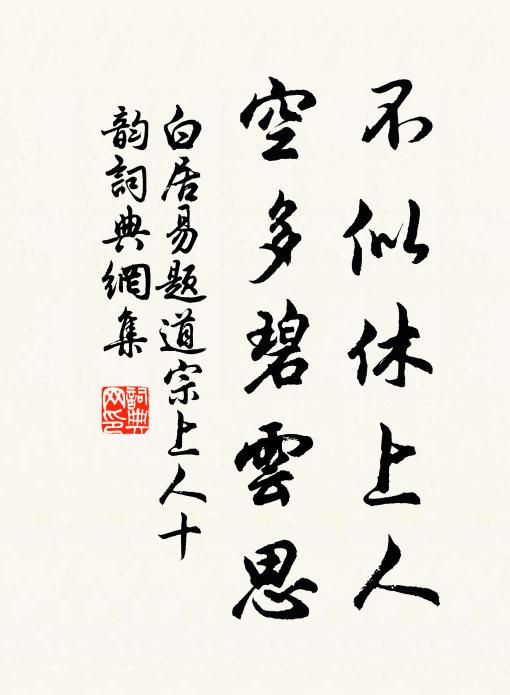 不似休上人
空多碧雲思
白居易题道宗上人十
韵詞典網集
詞典
网印